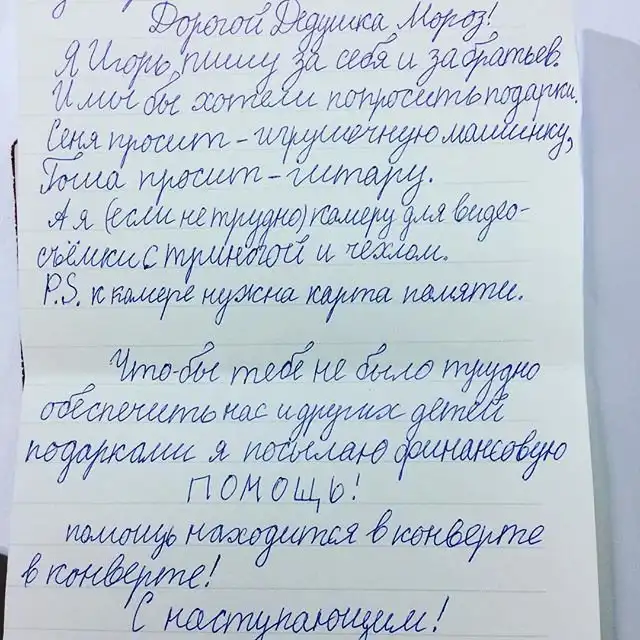 Дорогой Дедушка Мороз!
Я Игорь, пишу за себя и за братьев.
И мы бы хотели попросить подарки.
Сеня просит - игрушечную машинку,
Гоша просит - гитару.
А я (если не трудно) камеру для видео-
съёмки с треногой и чехлом.
P.S. к камере нужна карта памяти.
Что-бы тебе не было трудно
обеспечить нас и других детей
подарками я посылаю финансовую
ПОМОЩЬ!
помощь находится в конверте
в конверте!
С наступающим!